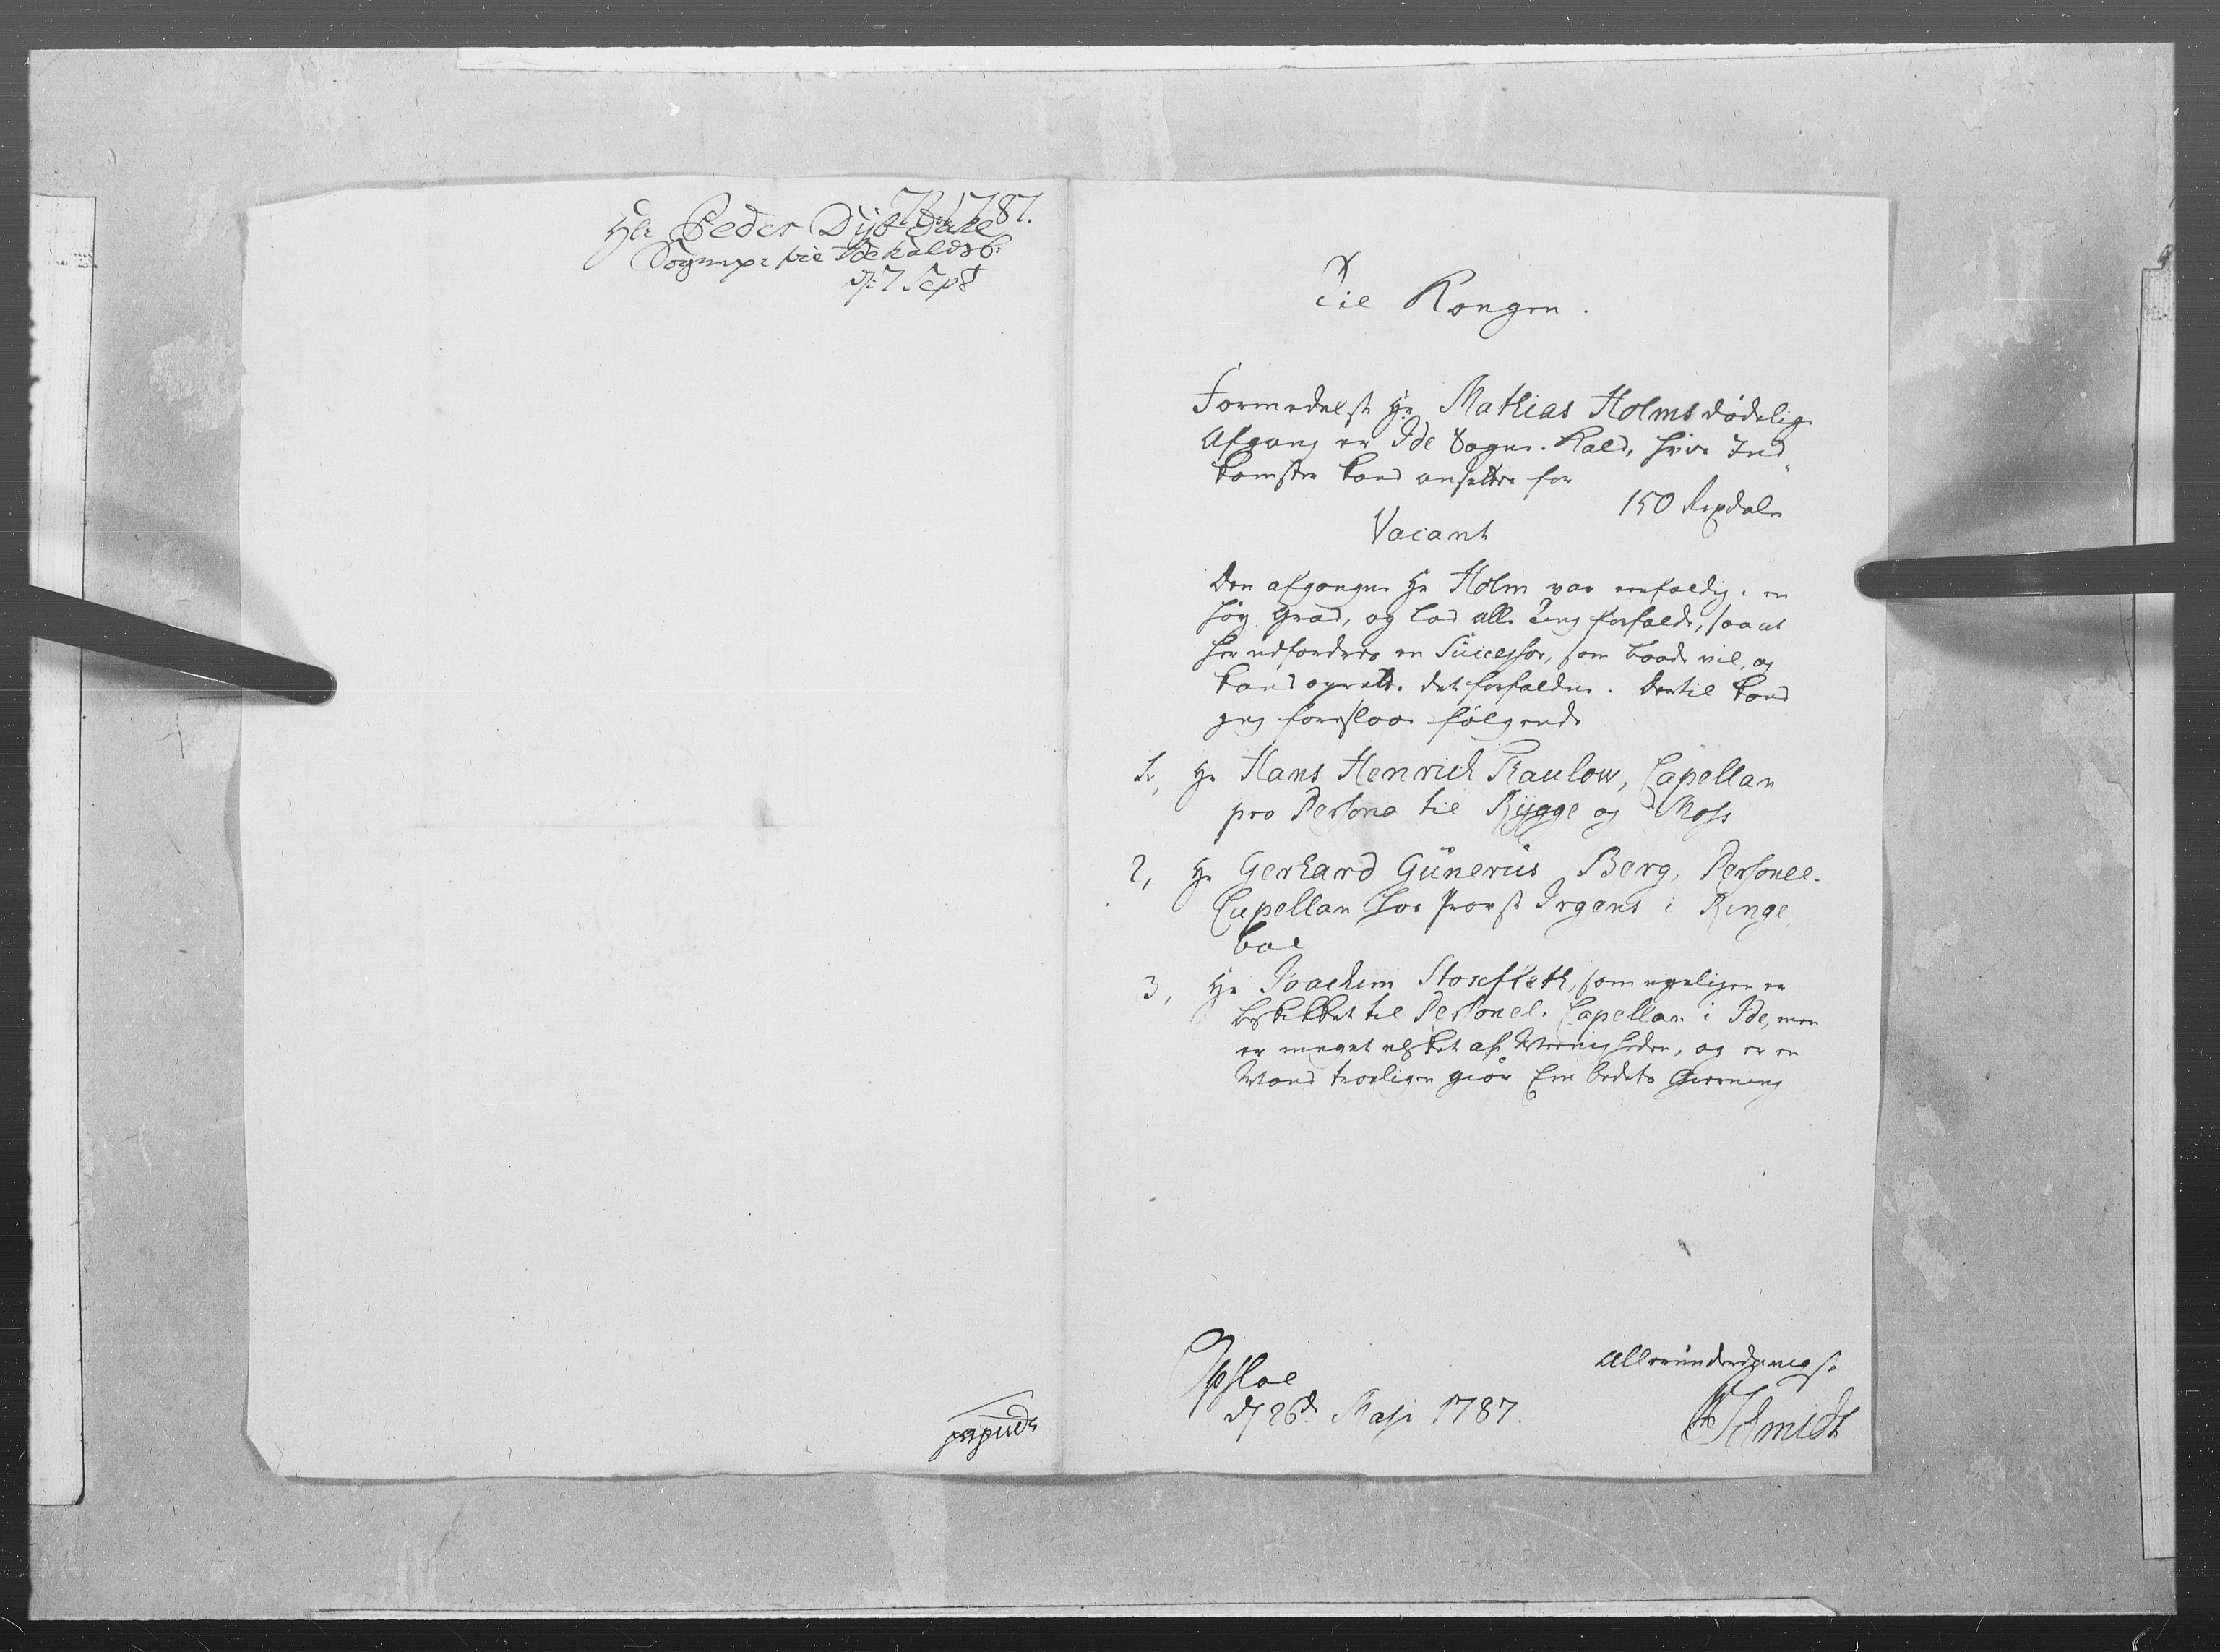 1787.
Hr Peder Dybdahl
Sognepr til Idekaldsb:
d: 7 Sept
Til Kongen.
Formedelst Hr Mathias Holms dødelige
Afgang er Ide Sogne-Kald, hvis Ind-
komster kand ansættes for
150 Rixdaler
Vacant
Den afgangne Hr Holm var eenfoldig i en
høy Grad, og lod alle Ting forfalde, saa at
her udfordres en Successor, som baade vil, og
kand oprette det forfaldne. Dertil kand
jeg foreslaae følgende
1, Hr Hans Henrich Thaulow, Capellan
pro Persona til Rygge og Moss
2, Hr Gerhard Günerus Berg, Personel-
Capellan hos Provst Irgens i Ringe-
boe
3, Hr Joachim Stockfleth, som nyeligen er
beskikket til Personel-Capellan i Ide, men
er meget elsket af Meenigheden, og er en
Mand troeligen giør Embedets Gierning
Opsloe
d 26de Maji 1787.
Allerunderdanigst
Schmidt